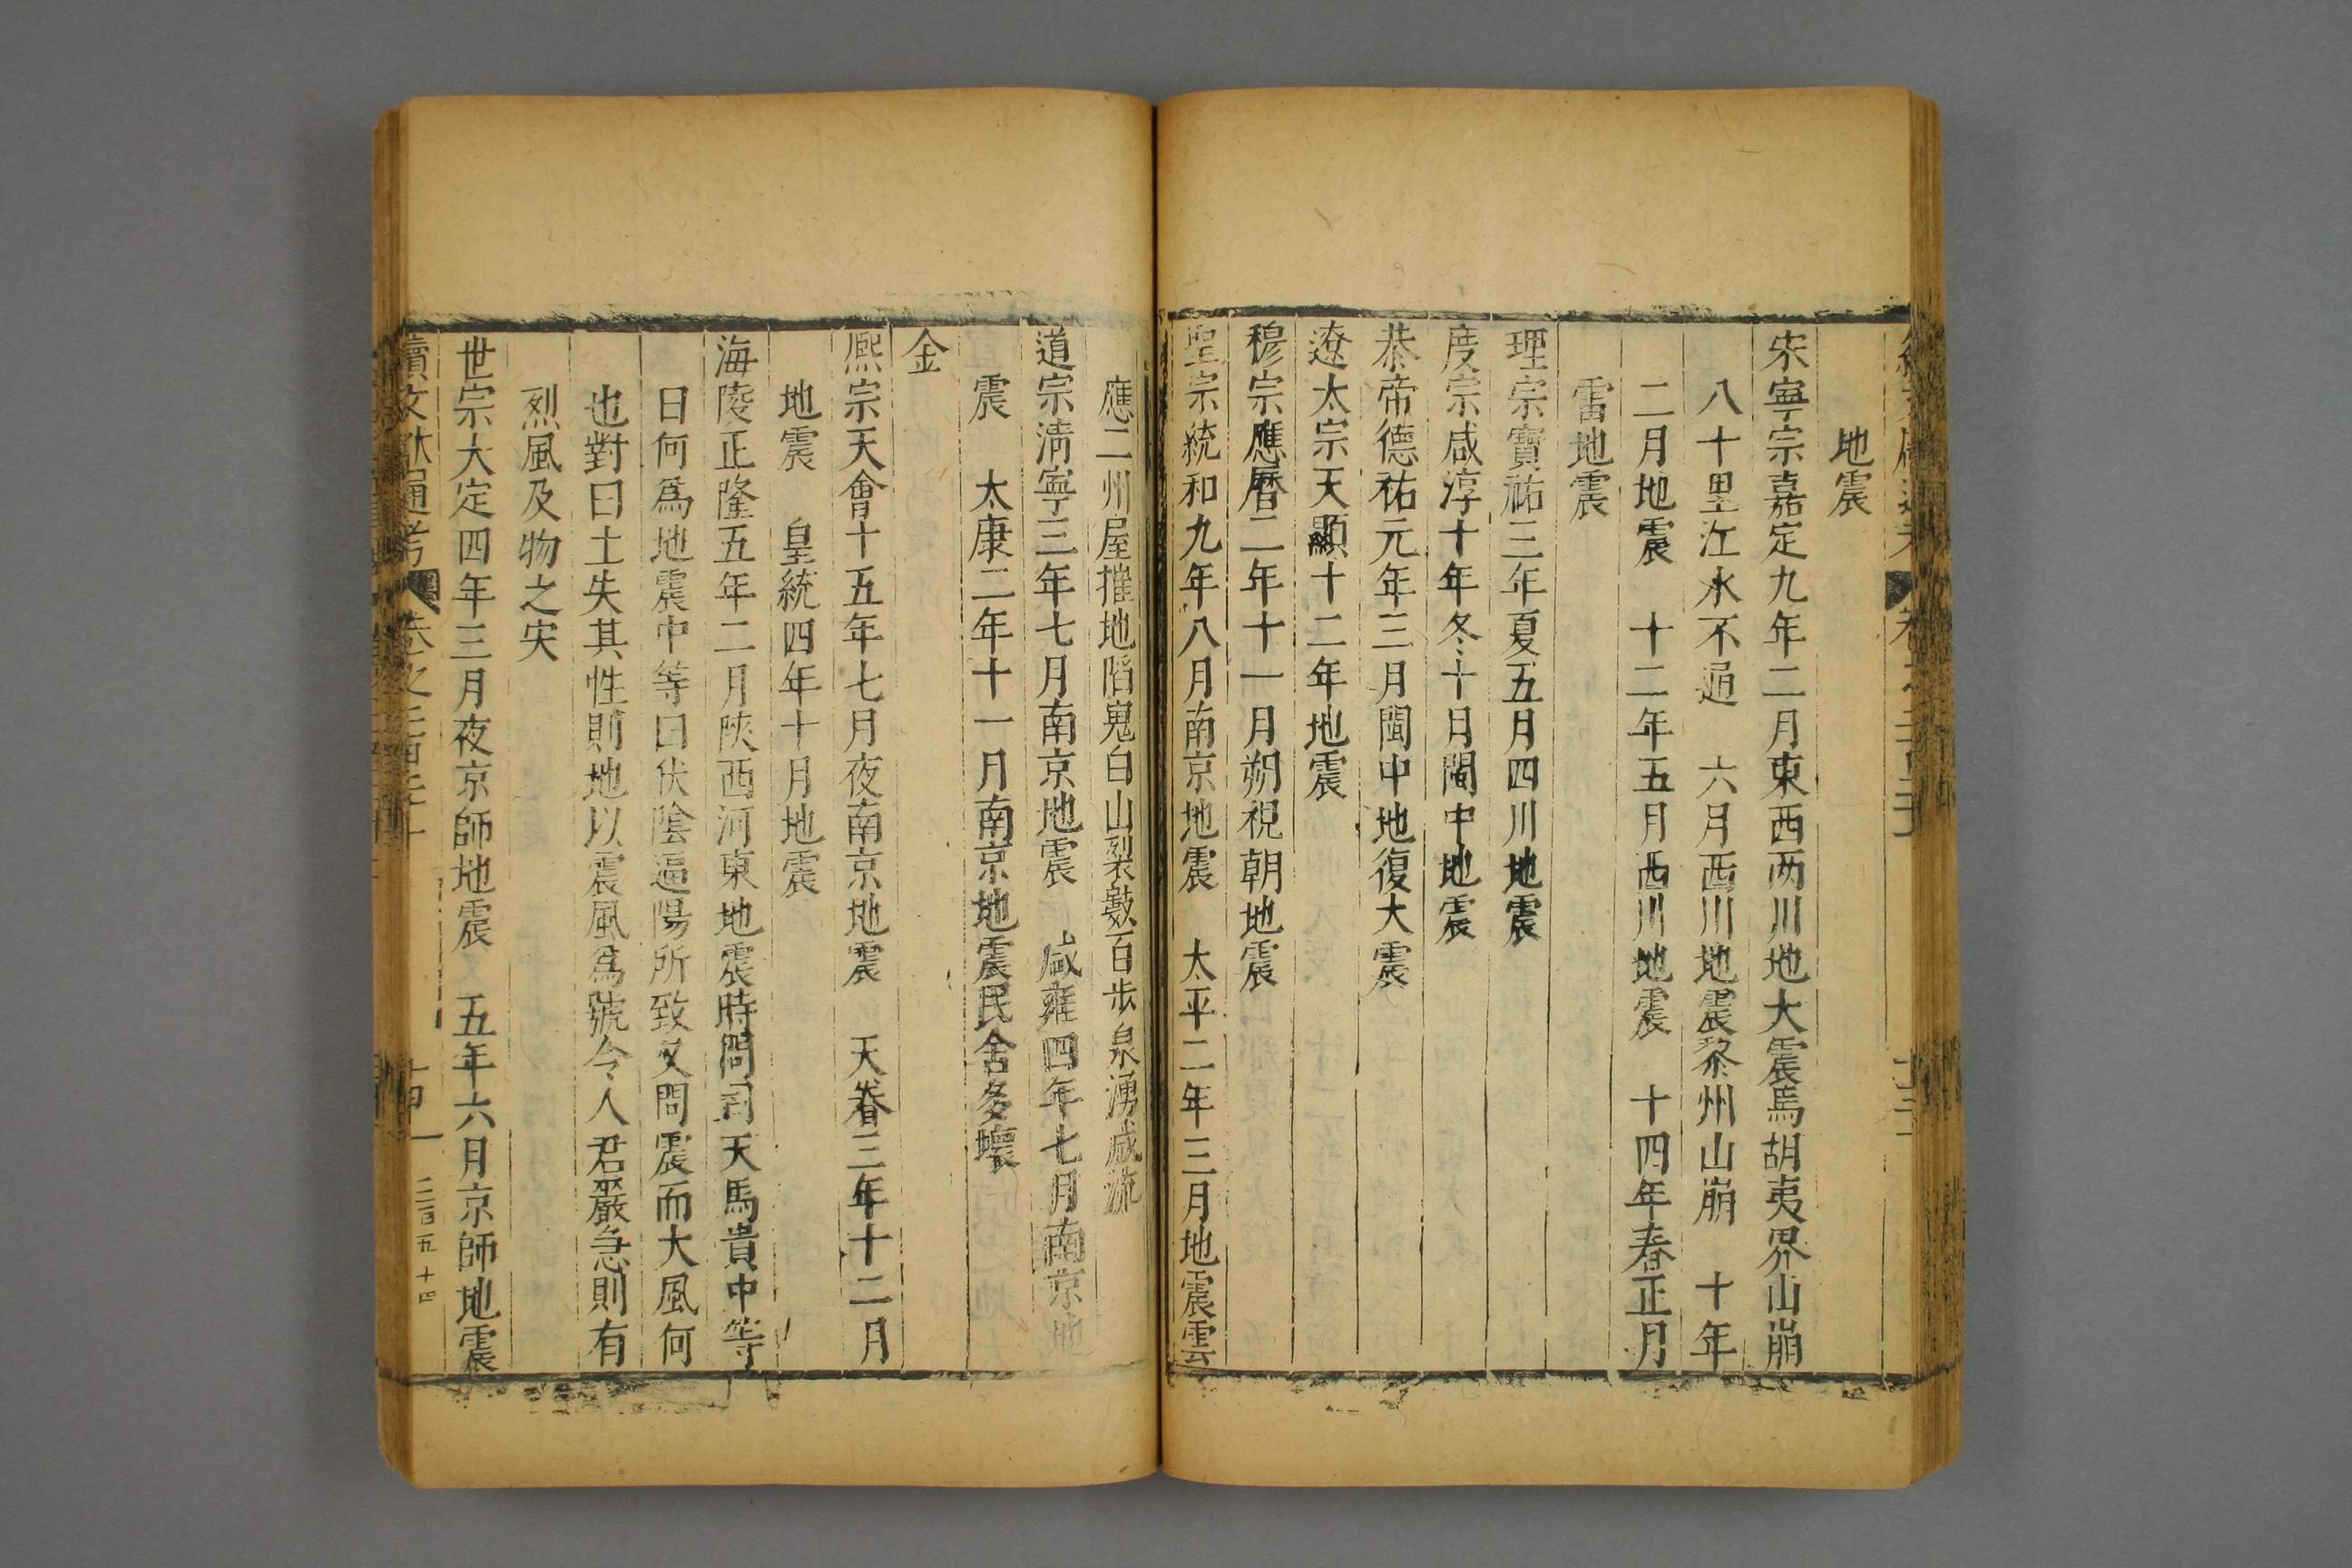 地震
宋寧宗嘉定九年二月東西两川地大震馬胡夷界山崩
八十里江水不通　六月西川地震黎州山崩　十年
二月地震　十二年五月西川地震　十四年春正月
雷地震
理宗寶祐三年夏五月四川地震
度宗咸淳十年冬十月閩中地震
恭帝德祐元年三月閩中地復大震
遼太宗天顯十二年地震
穆宗應曆二年十一月朔視朝地震
聖宗統和九年八月南京地震　太平二年三月地震雲
應二州屋摧地陷嵬白山裂數百步泉湧成流
道宗清寧三年七月南京地震　咸雍四年七月南京地
震　太康二年十一月南京地震民舍多壞
金
熈宗天會十五年七月夜南京地震　天眷三年十二月
地震　皇統四年十月地震
海陵正隆五年二月陜西河東地震時問司天馬貴中等
曰何爲地震中等曰伏陰逼陽所致又問震而大風何
也對曰土失其性則地以震風爲號令人君嚴急則有
烈風及物之灾
世宗大定四年三月夜京師地震　五年六月京師地震
續文獻通考　卷之二百二十　十四　二百五十四